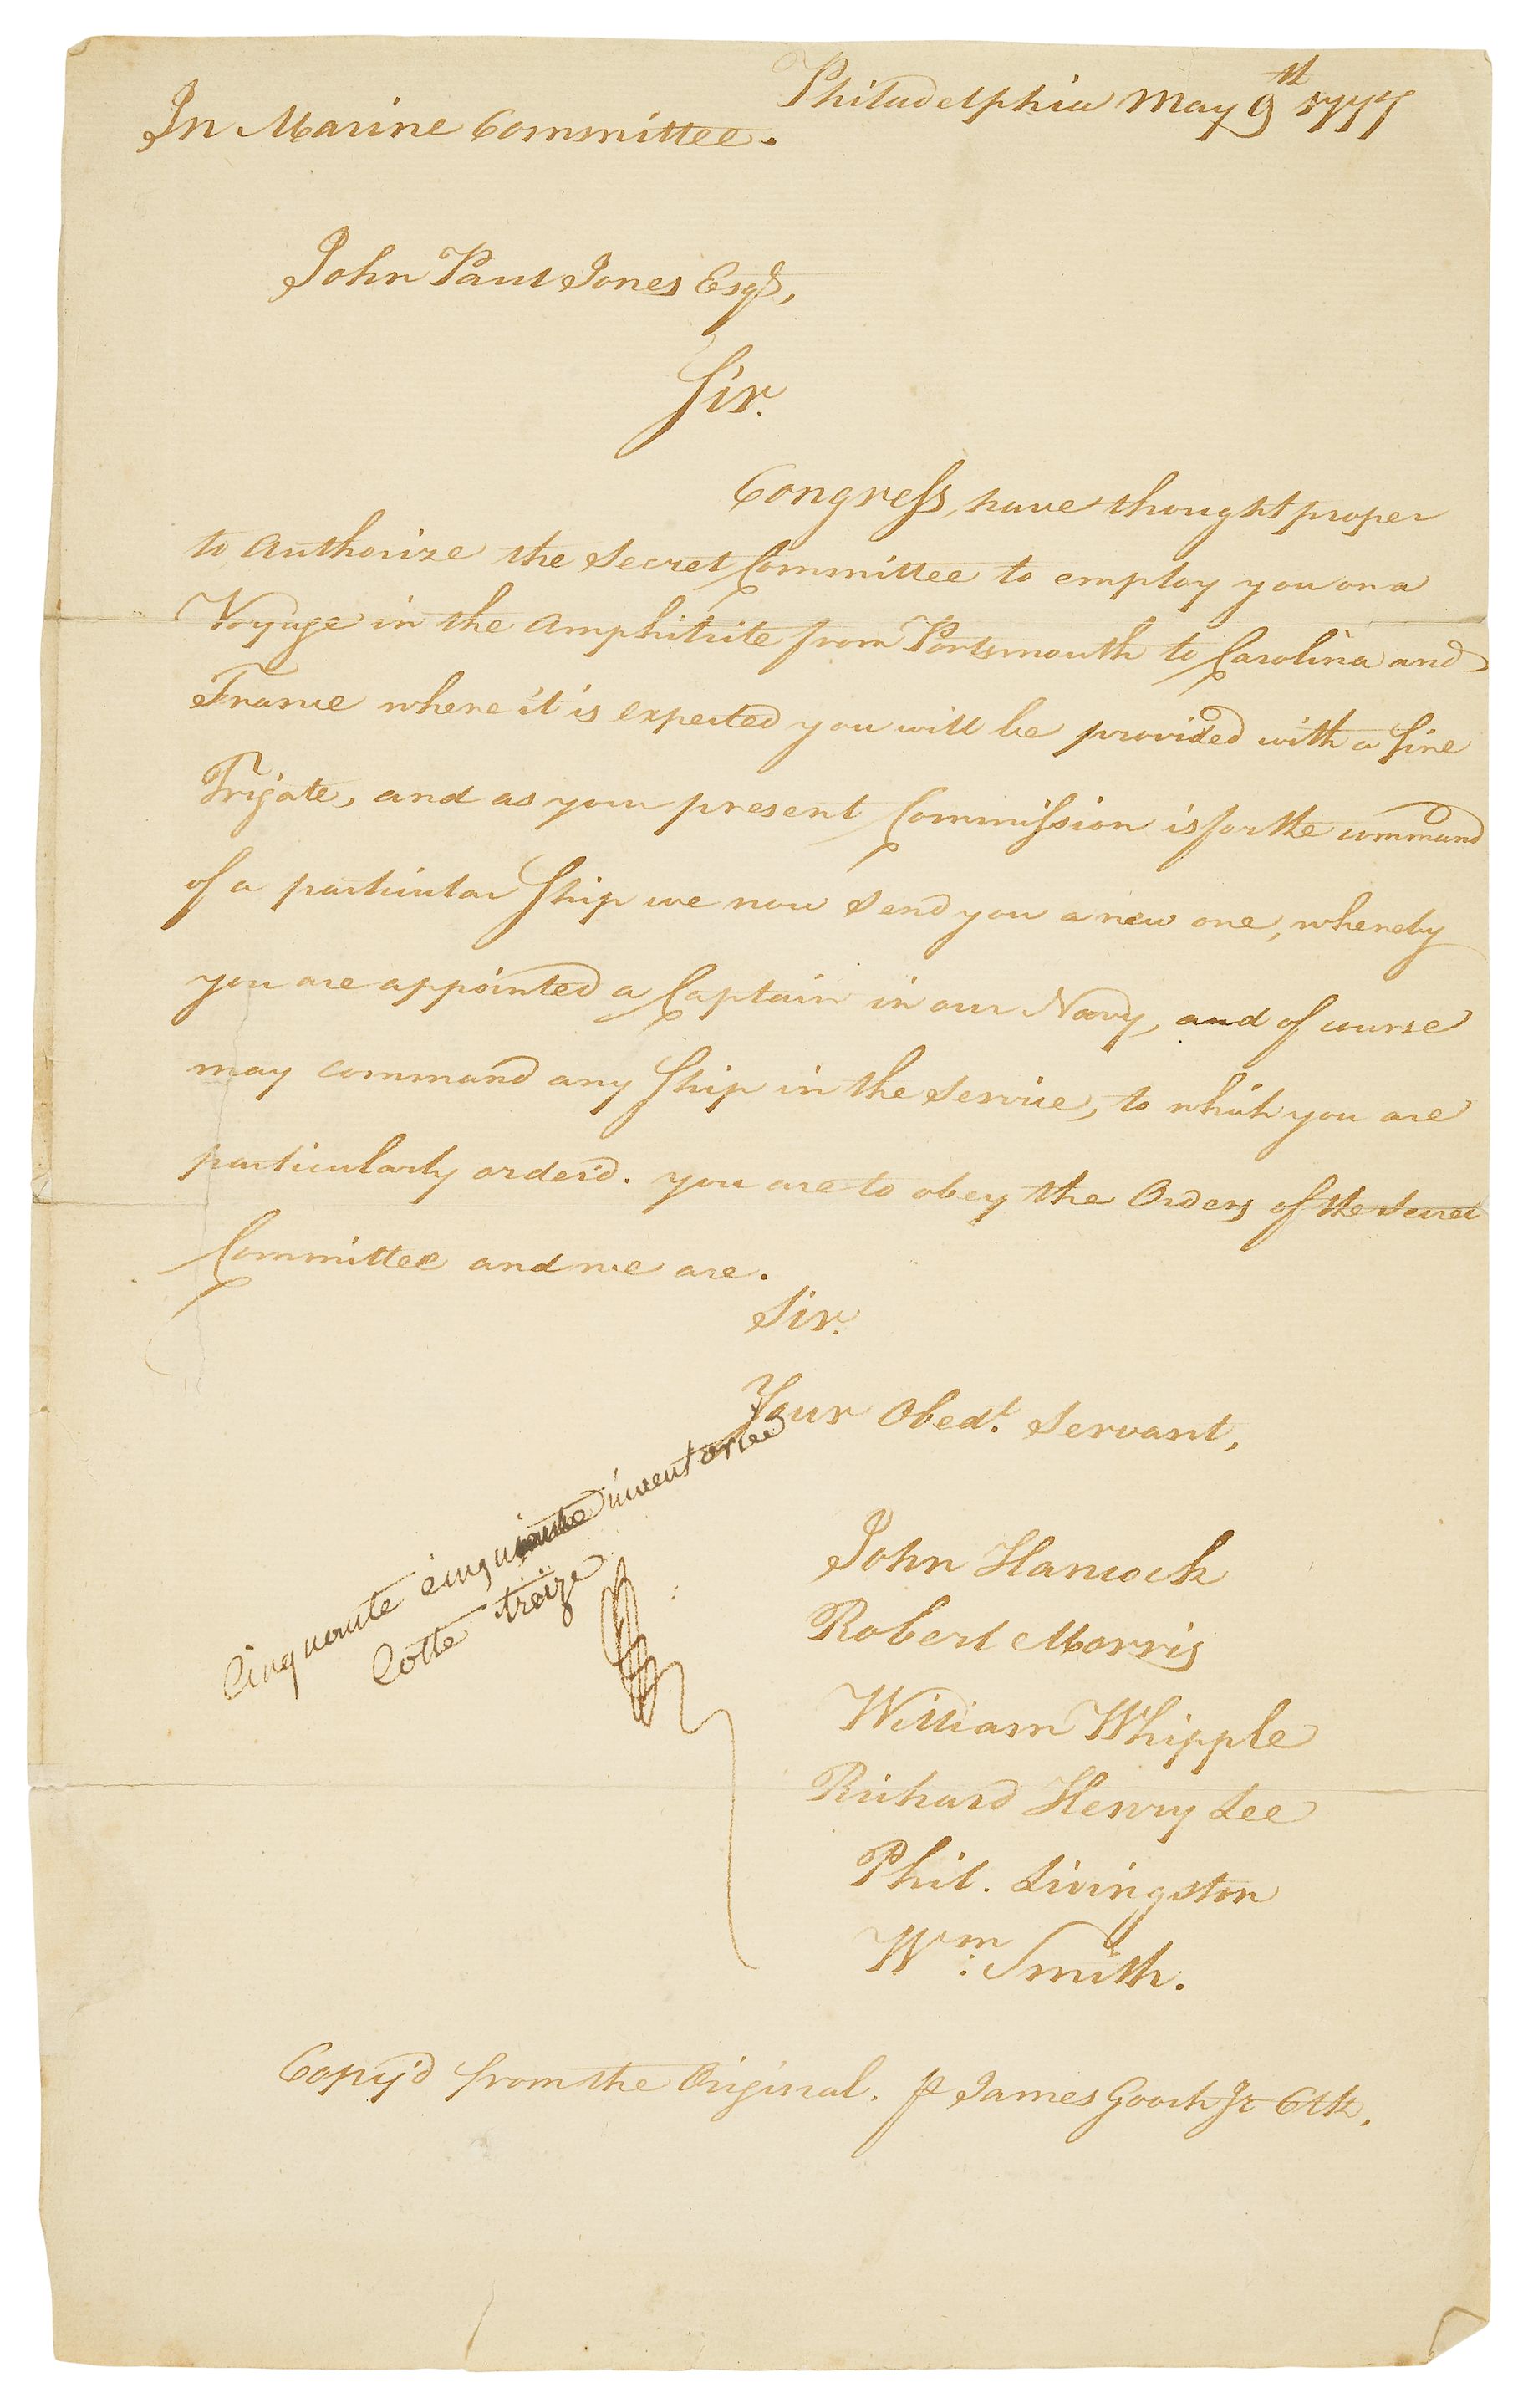 Philadelphia May 9th 1777
In Marine Committee.
John Paul Jones Esqr,
Sir.
Congress, have thought proper
to Authorize the Secret Committee to employ you on a
Voyage in the Amphitrite from Portsmouth to Carolina and
France where it is expected you will be provided with a fine
Frigate, and as your present Commission is for the command
of a particular Ship we now send you a new one, whereby
you are appointed a Captain in our Navy, and of course
may command any Ship in the Service, to which you are
particularly order'd. you are to obey the Orders of the Secret
Committee and we are.
Sir.
Your Obedt. Servant,
Cinquante cinq inventoriee
Cotte treize
John Hancock
Robert Morris
William Whipple
Richard Henry Lee
Phil. Livingston
Wm: Smith.
Copy'd from the Original. James Gooch Jr Clk.